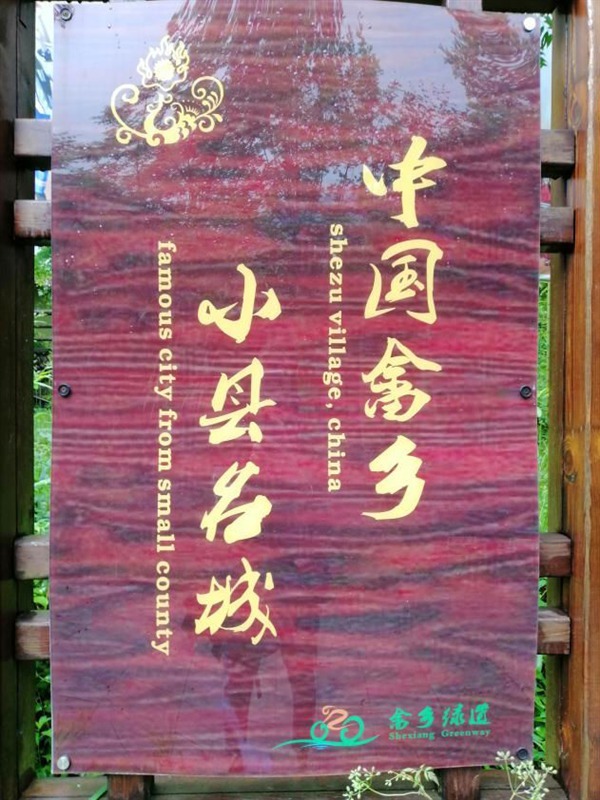 中国畲乡
shezu village, china
小县名城
famous city from small county
畲乡绿道
Shexiang Greenway